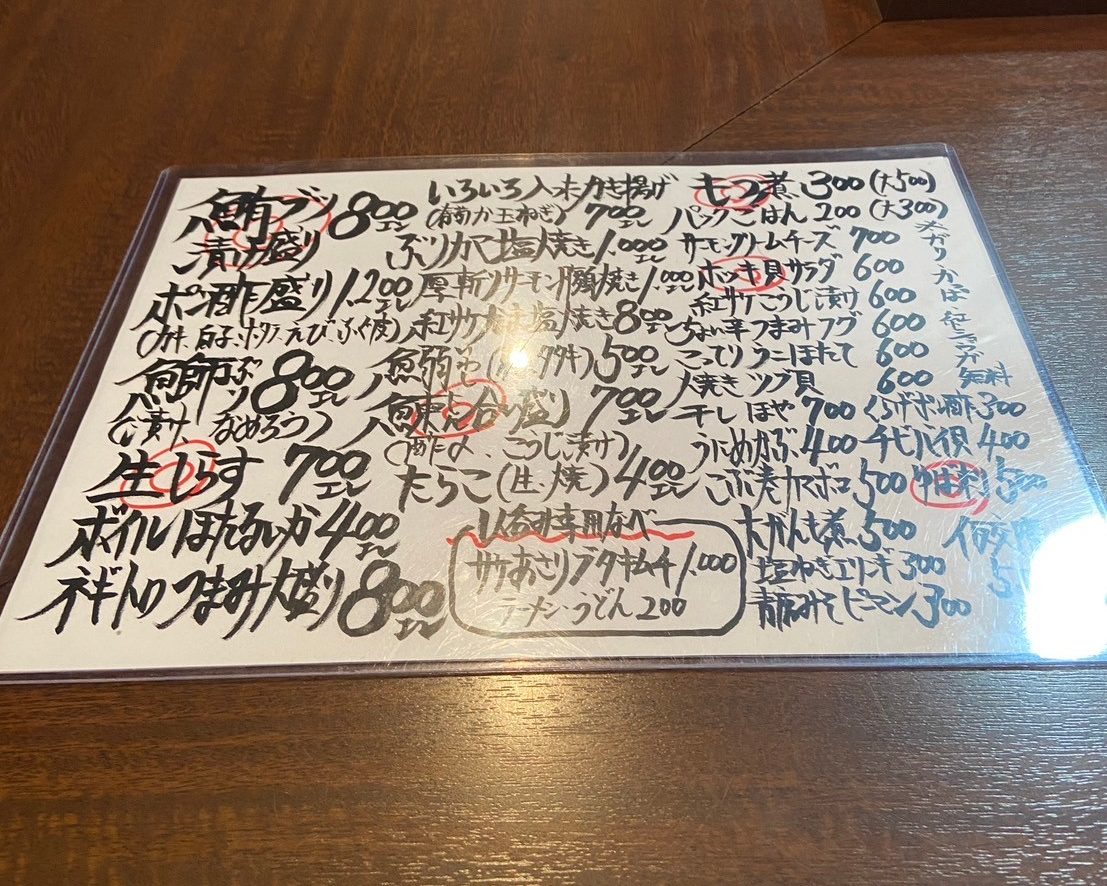 鮪ブツ 800エン
漬け盛り
ポン酢盛り 1.200エン
(カキ、白子、ホタテ、えび、ふぐ皮)
鰤ぶり 800エン
(ご漬け なめろう)
生しらす 700エン
ボイルほたるいか 400エン
ネギトロつまみ大盛り 800エン
いろいろ入ったかき揚げ
(葡か玉ねぎ) 700エン
ぶりカマ塩焼き 1.000エン
厚斬りサーモン西京焼き 1.000エン
紅サケカマ塩焼き 800エン
鰯 タタキ) 500エン
盛り 700エン
(酢〆、こうじ漬け)
たらこ(生、焼) 400エン
1人呑み専用なべ
サケあさりブタキムチ 1.000
ラーメン・うどん 200
もつ煮 300 (大500)
パックごはん 200 (大300)
サーモンクリームチーズ 700
ホッキ貝サラダ 600
紅サケこうじ漬け 600
ちょい辛つまみフグ 600
こってりウニほたて 600
焼きツブ貝 600
干しほや 700
うにめかぶ 400
こぶ巻カマボコ 500
大がんも煮 500
塩ねぎエリンギ 300
青唐みそピーマン 300
くらげポン酢 300
500